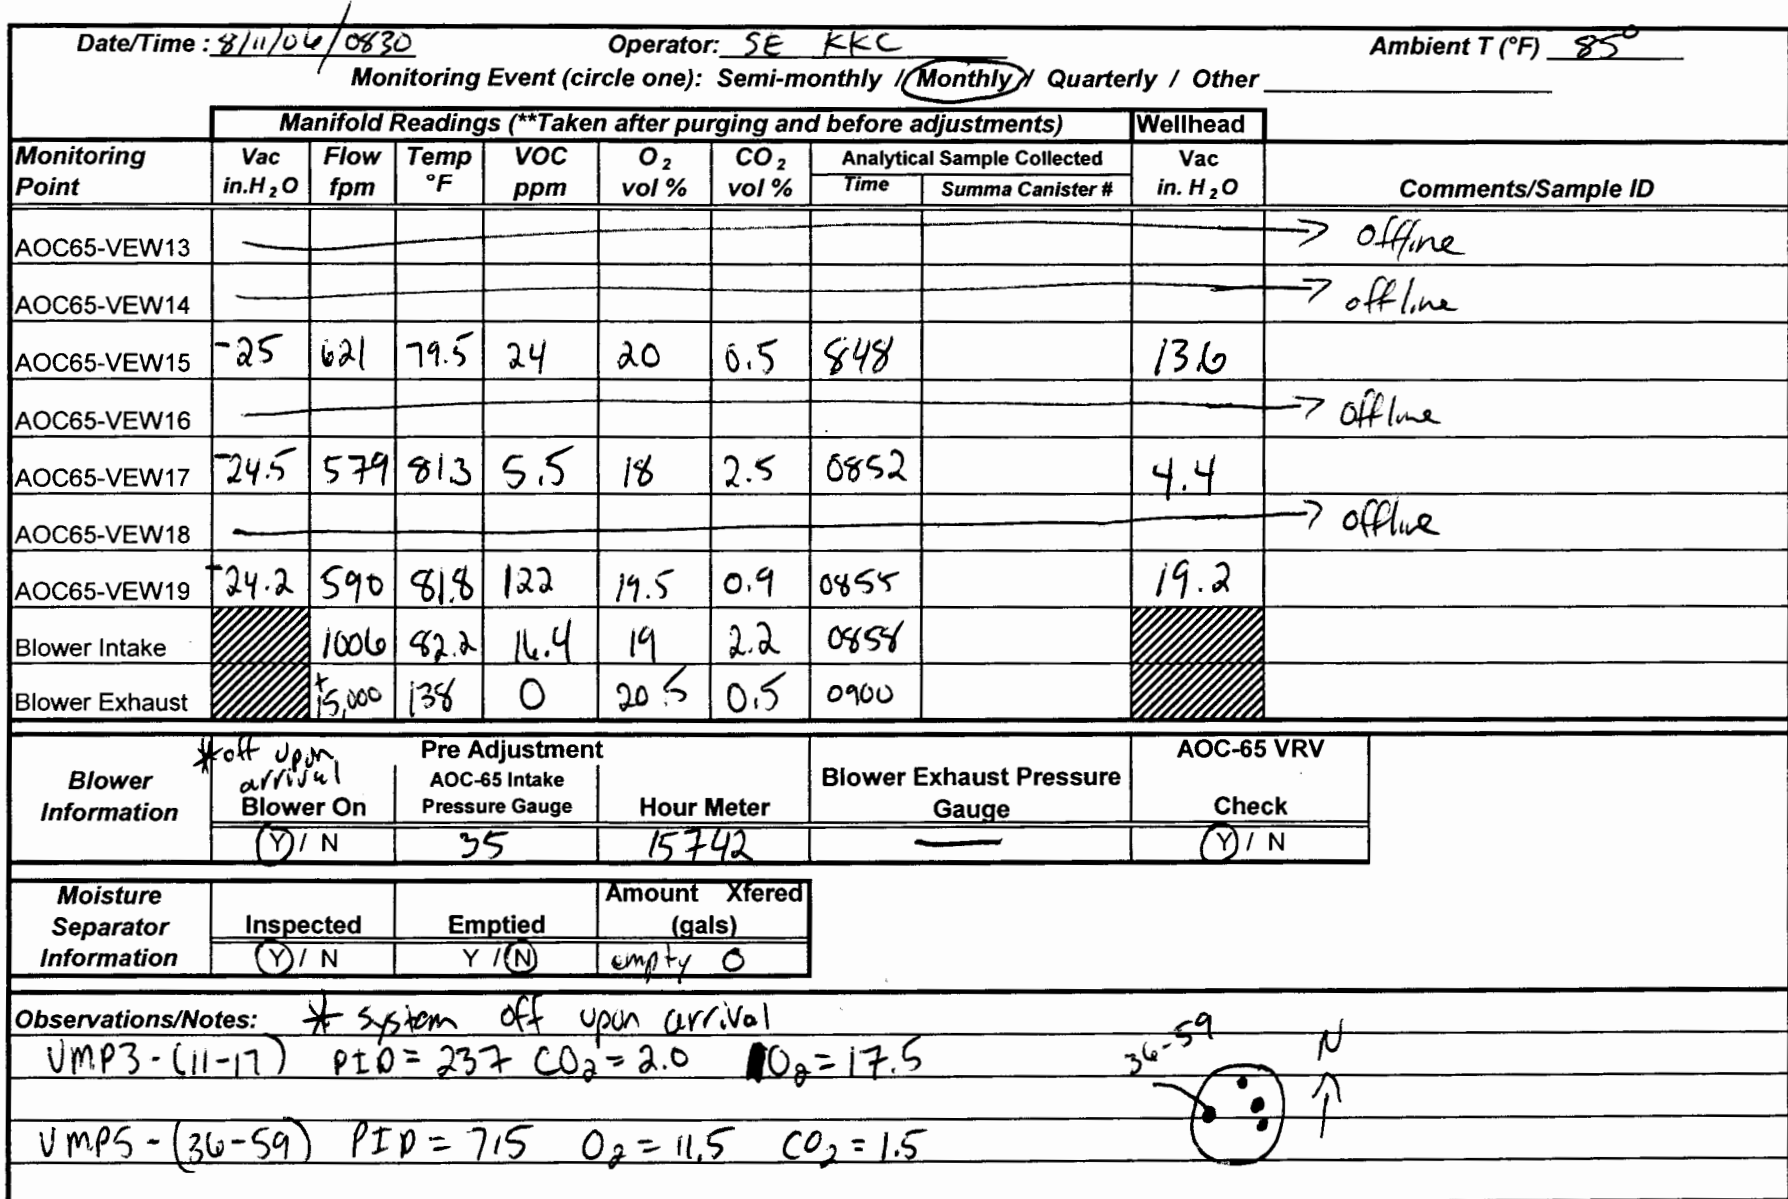 Date/Time : 8/11/06/0830 Operator: SE KKC Ambient T (°F) 85°
Monitoring Event (circle one): Semi-monthly / Monthly / Quarterly / Other
Manifold Readings (**Taken after purging and before adjustments) Wellhead
Monitoring Point Vac in.H2O Flow fpm Temp °F VOC ppm O2 vol % CO2 vol % Analytical Sample Collected Time Summa Canister # Vac in. H2O Comments/Sample ID
AOC65-VEW13 → offline
AOC65-VEW14 → offline
AOC65-VEW15 -25 621 79.5 24 20 0.5 848 13.6
AOC65-VEW16 → offline
AOC65-VEW17 -24.5 579 81.3 5.5 18 2.5 0852 4.4
AOC65-VEW18 → offline
AOC65-VEW19 -24.2 590 81.8 122 19.5 0.9 0855 19.2
Blower Intake 1006 82.2 16.4 19 2.2 0858
Blower Exhaust +15,000 138 0 20.5 0.5 0900
Blower Information
* off upon arrival
Blower On
Y / N
Pre Adjustment
AOC-65 Intake
Pressure Gauge
35
Hour Meter
15742
Blower Exhaust Pressure
Gauge
—
AOC-65 VRV
Check
Y / N
Moisture Separator Information
Inspected
Y / N
Emptied
Y / N
Amount Xfered
(gals)
empty 0
Observations/Notes: * system off upon arrival
VMP3 - (11-17) PID = 237 CO2 = 2.0 O2 = 17.5
36-59 N
VMP5 - (36-59) PID = 715 O2 = 11.5 CO2 = 1.5